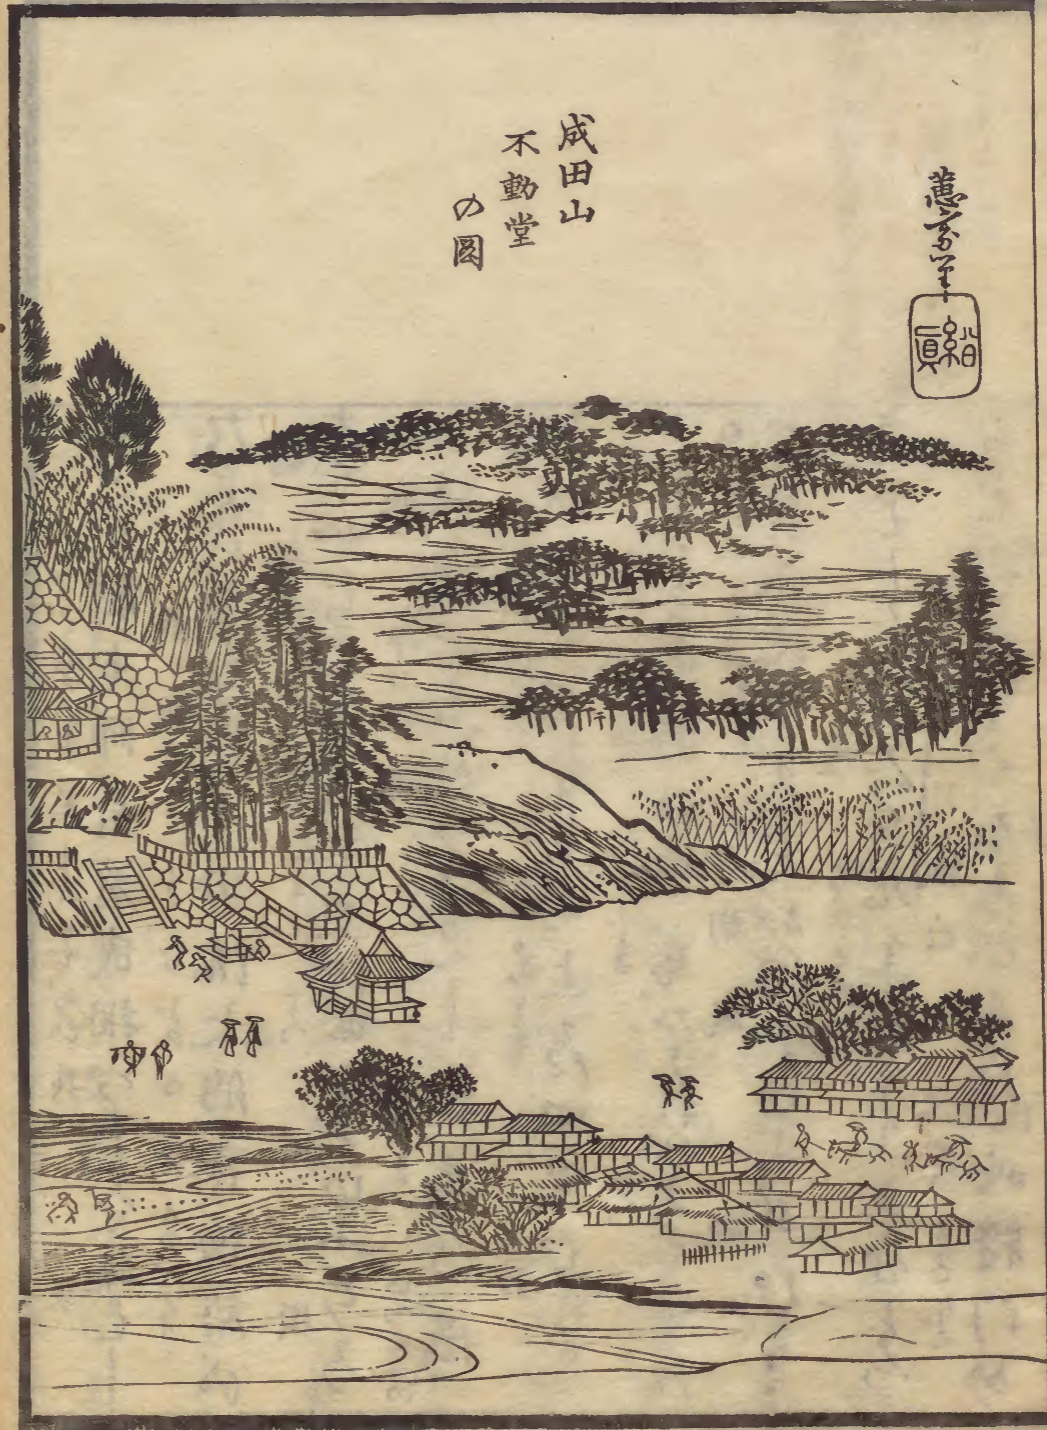 蕙斎筆
紹眞
成田山
不動堂
の圖